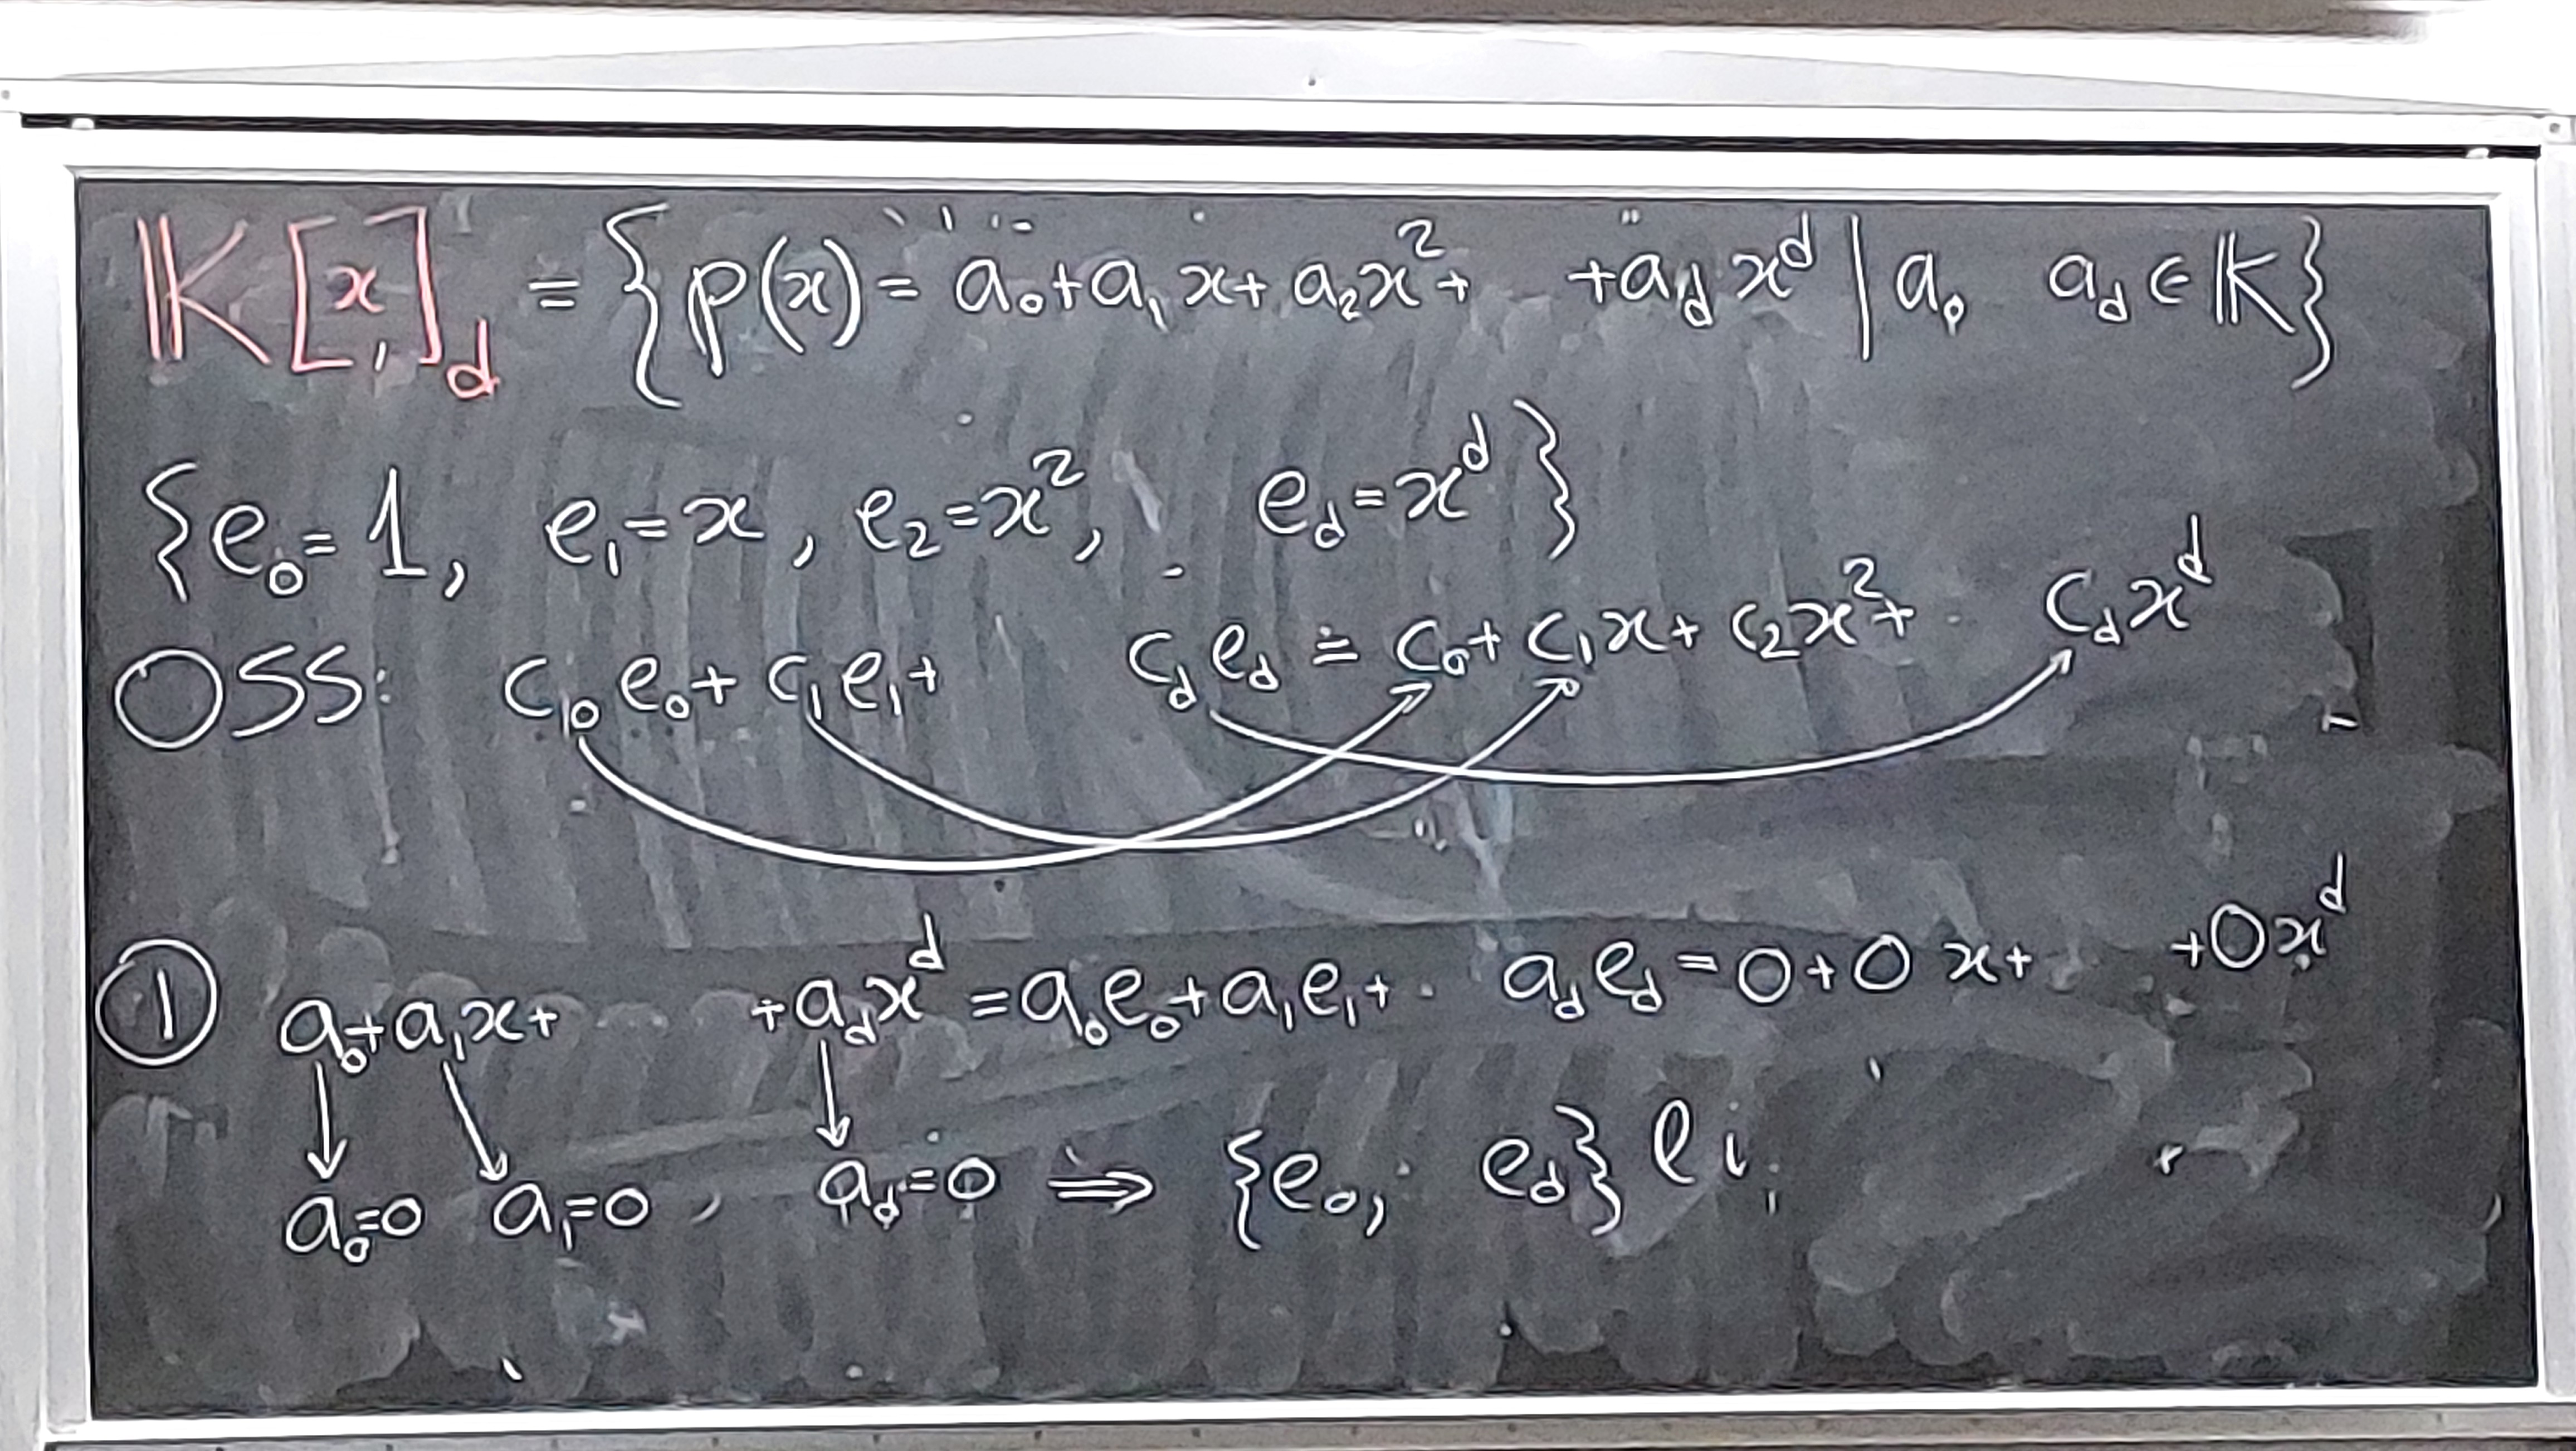 𝕂[x,]_d = {p(x) = a₀+a₁x+a₂x²+ +a_d x^d | a₀ a_d ∈ 𝕂}
{e₀=1, e₁=x, e₂=x², . e_d=x^d}
OSS: c₀e₀+c₁e₁+ c_d e_d = c₀+c₁x+c₂x²+ . c_d x^d
① a₀+a₁x+ +a_d x^d = a₀e₀+a₁e₁+ . a_d e_d = 0+0x+ +0x^d
a₀=0 a₁=0, a_d=0 ⟹ {e₀, e_d} l i.